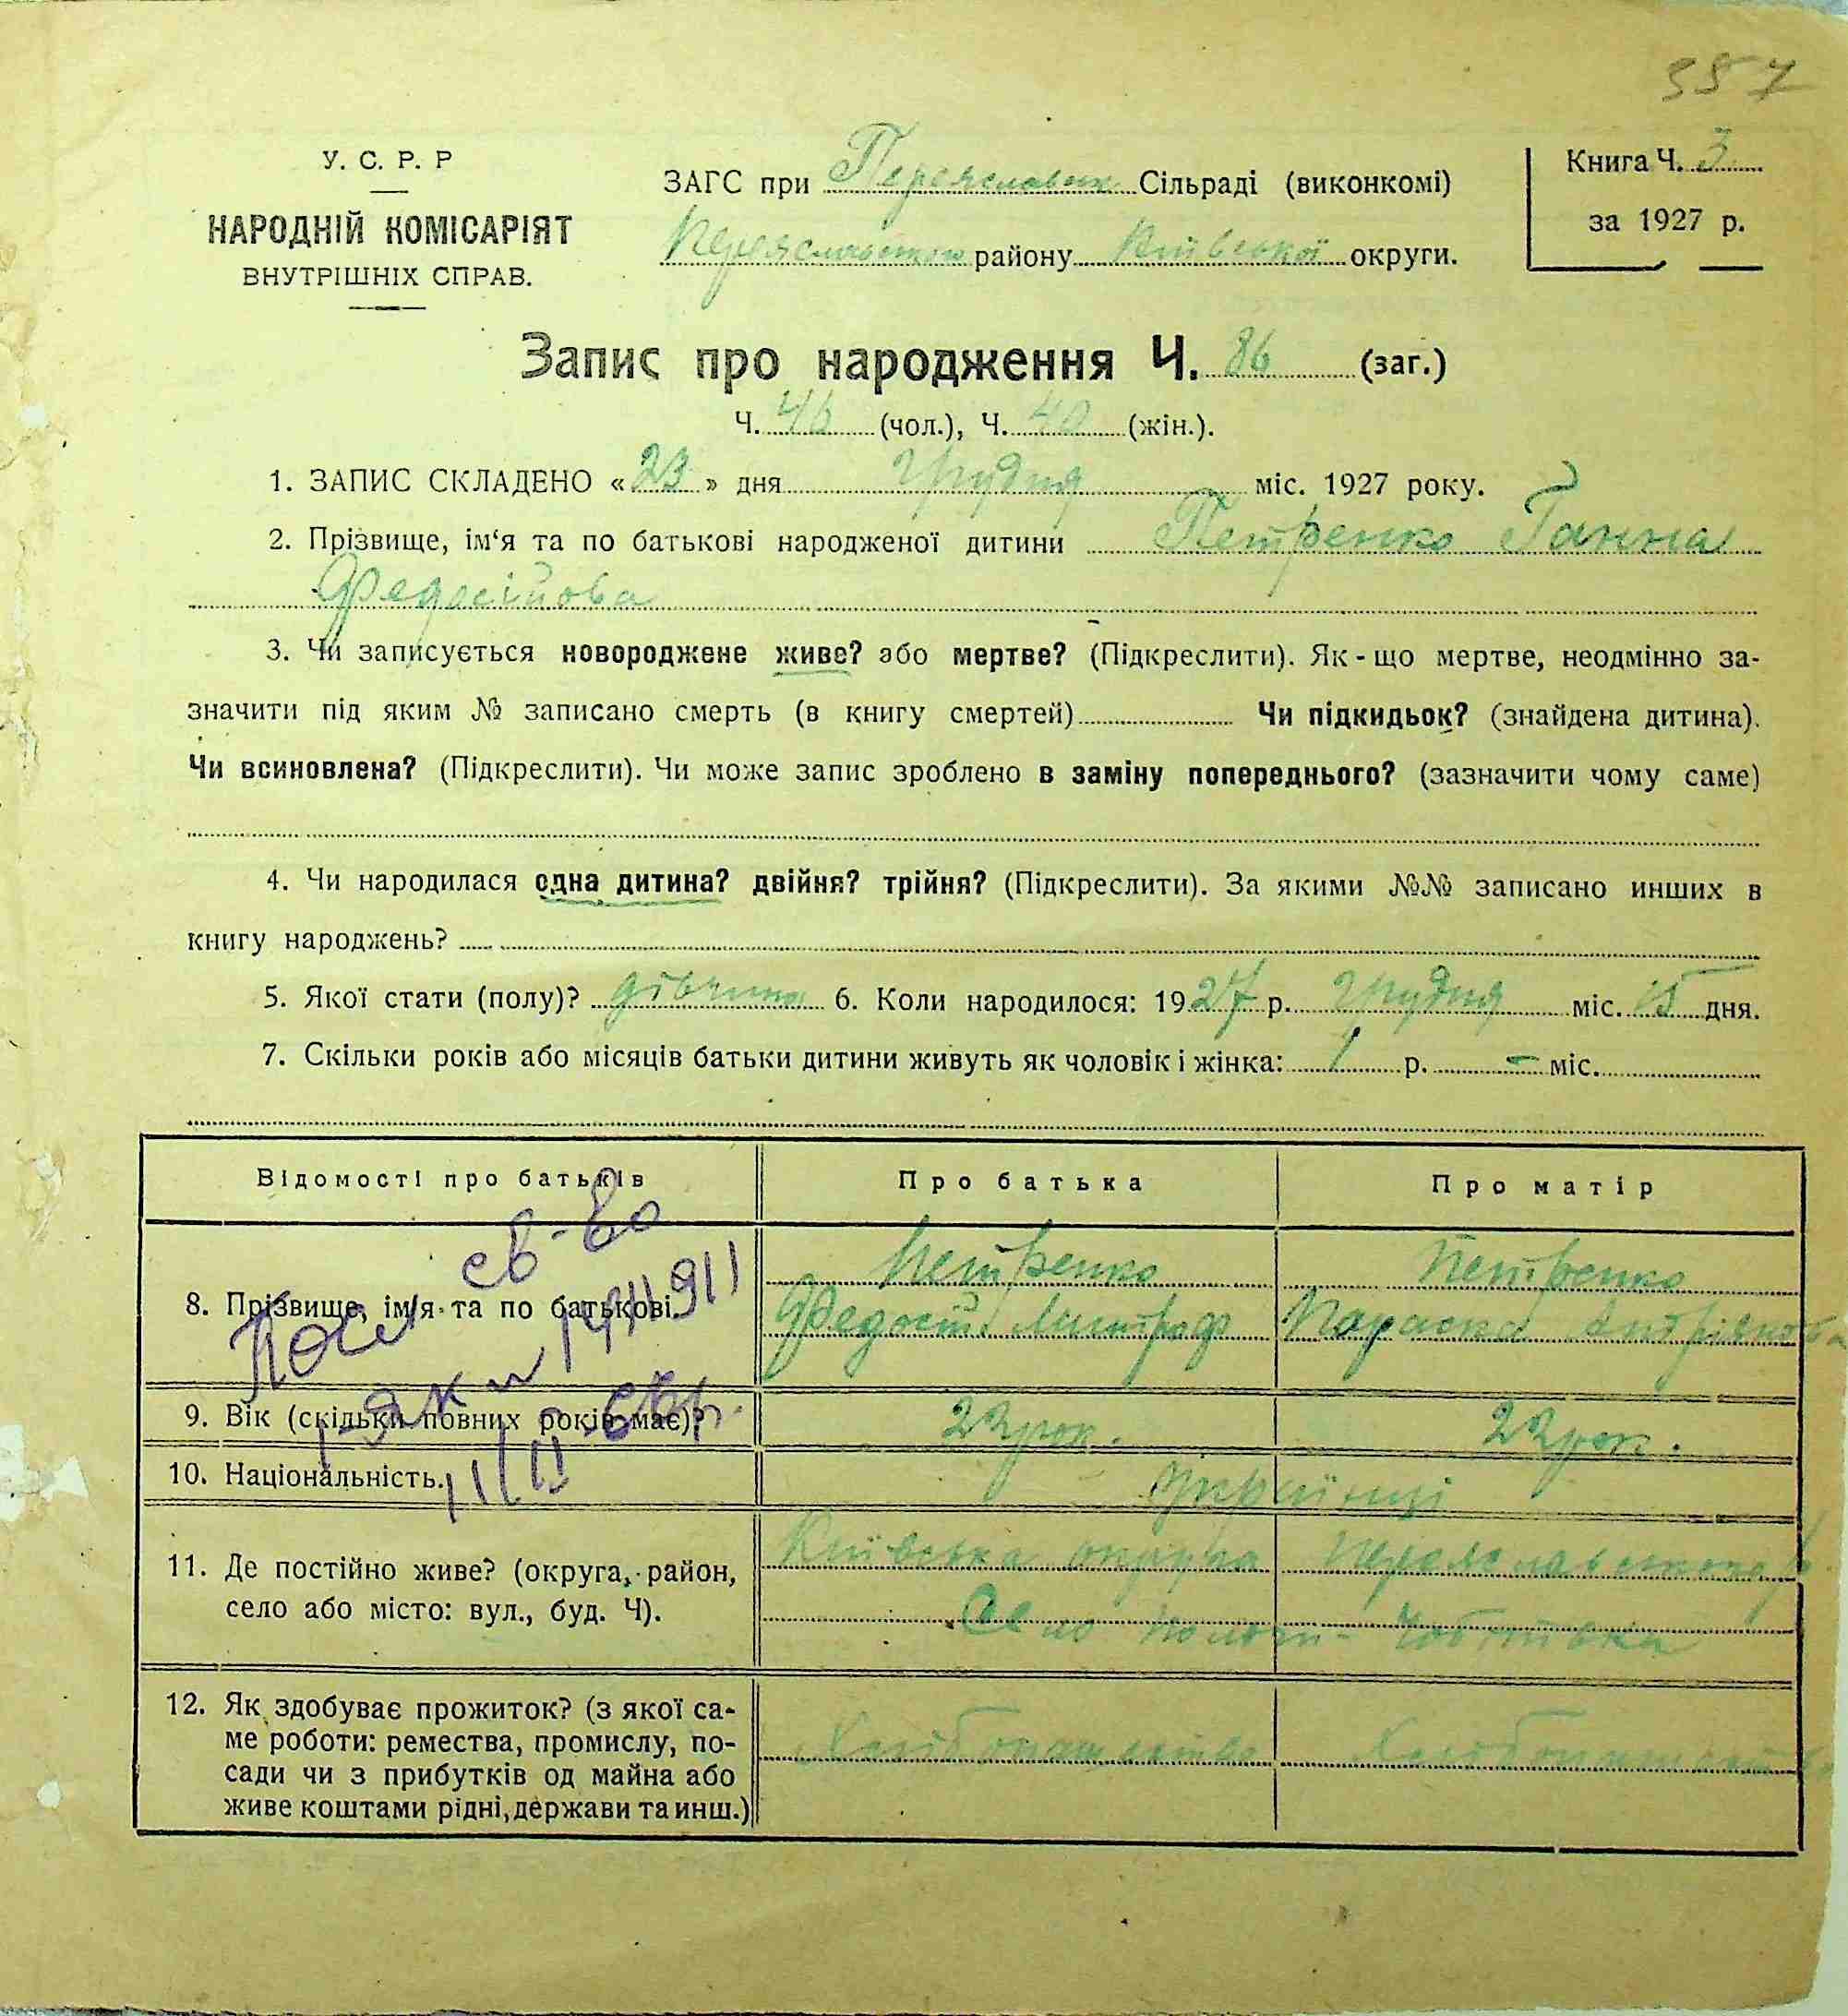 357
У. С. Р. Р
НАРОДНІЙ КОМІСАРІЯТ
ВНУТРІШНІХ СПРАВ.
ЗАГС при Переяславськ Сільраді (виконкомі)
Переяславськом району Київської округи.
Книга Ч. 3
за 1927 р.
Запис про народження Ч. 86 (заг.)
Ч. 46 (чол.), Ч. 40 (жін.).
1. ЗАПИС СКЛАДЕНО «23» дня грудня міс. 1927 року.
2. Прізвище, ім‘я та по батькові народженої дитини Петренко Ганна
Федосійова
3. Чи записується новороджене живе? або мертве? (Підкреслити). Як-що мертве, неодмінно за-
значити під яким № записано смерть (в книгу смертей) Чи підкидьок? (знайдена дитина).
Чи всиновлена? (Підкреслити). Чи може запис зроблено в заміну попереднього? (зазначити чому саме)
4. Чи народилася одна дитина? двійня? трійня? (Підкреслити). За якими №№ записано инших в
книгу народжень?
5. Якої стати (полу)? дівчина 6. Коли народилося: 1927 р. грудня міс. 15 дня.
7. Скільки років або місяців батьки дитини живуть як чоловік і жінка: 1 р. - міс.
Відомості про батьків Про батька Про матір
св-во
8. Прізвище, ім‘я та по батькові. Петренко Петренко
Федосій Митроф Параска
9. Вік (скільки повних років має)? 22 рок. 22 рок.
10. Національність. Українці
11. Де постійно живе? (округа, район,
село або місто: вул., буд. Ч).
Київська округа Переяславського р
Село Пологи-Чобітівка
12. Як здобуває прожиток? (з якої са-
ме роботи: ремества, промислу, по-
сади чи з прибутків од майна або
живе коштами рідні, держави та инш.)
Хліборобство Хліборобство